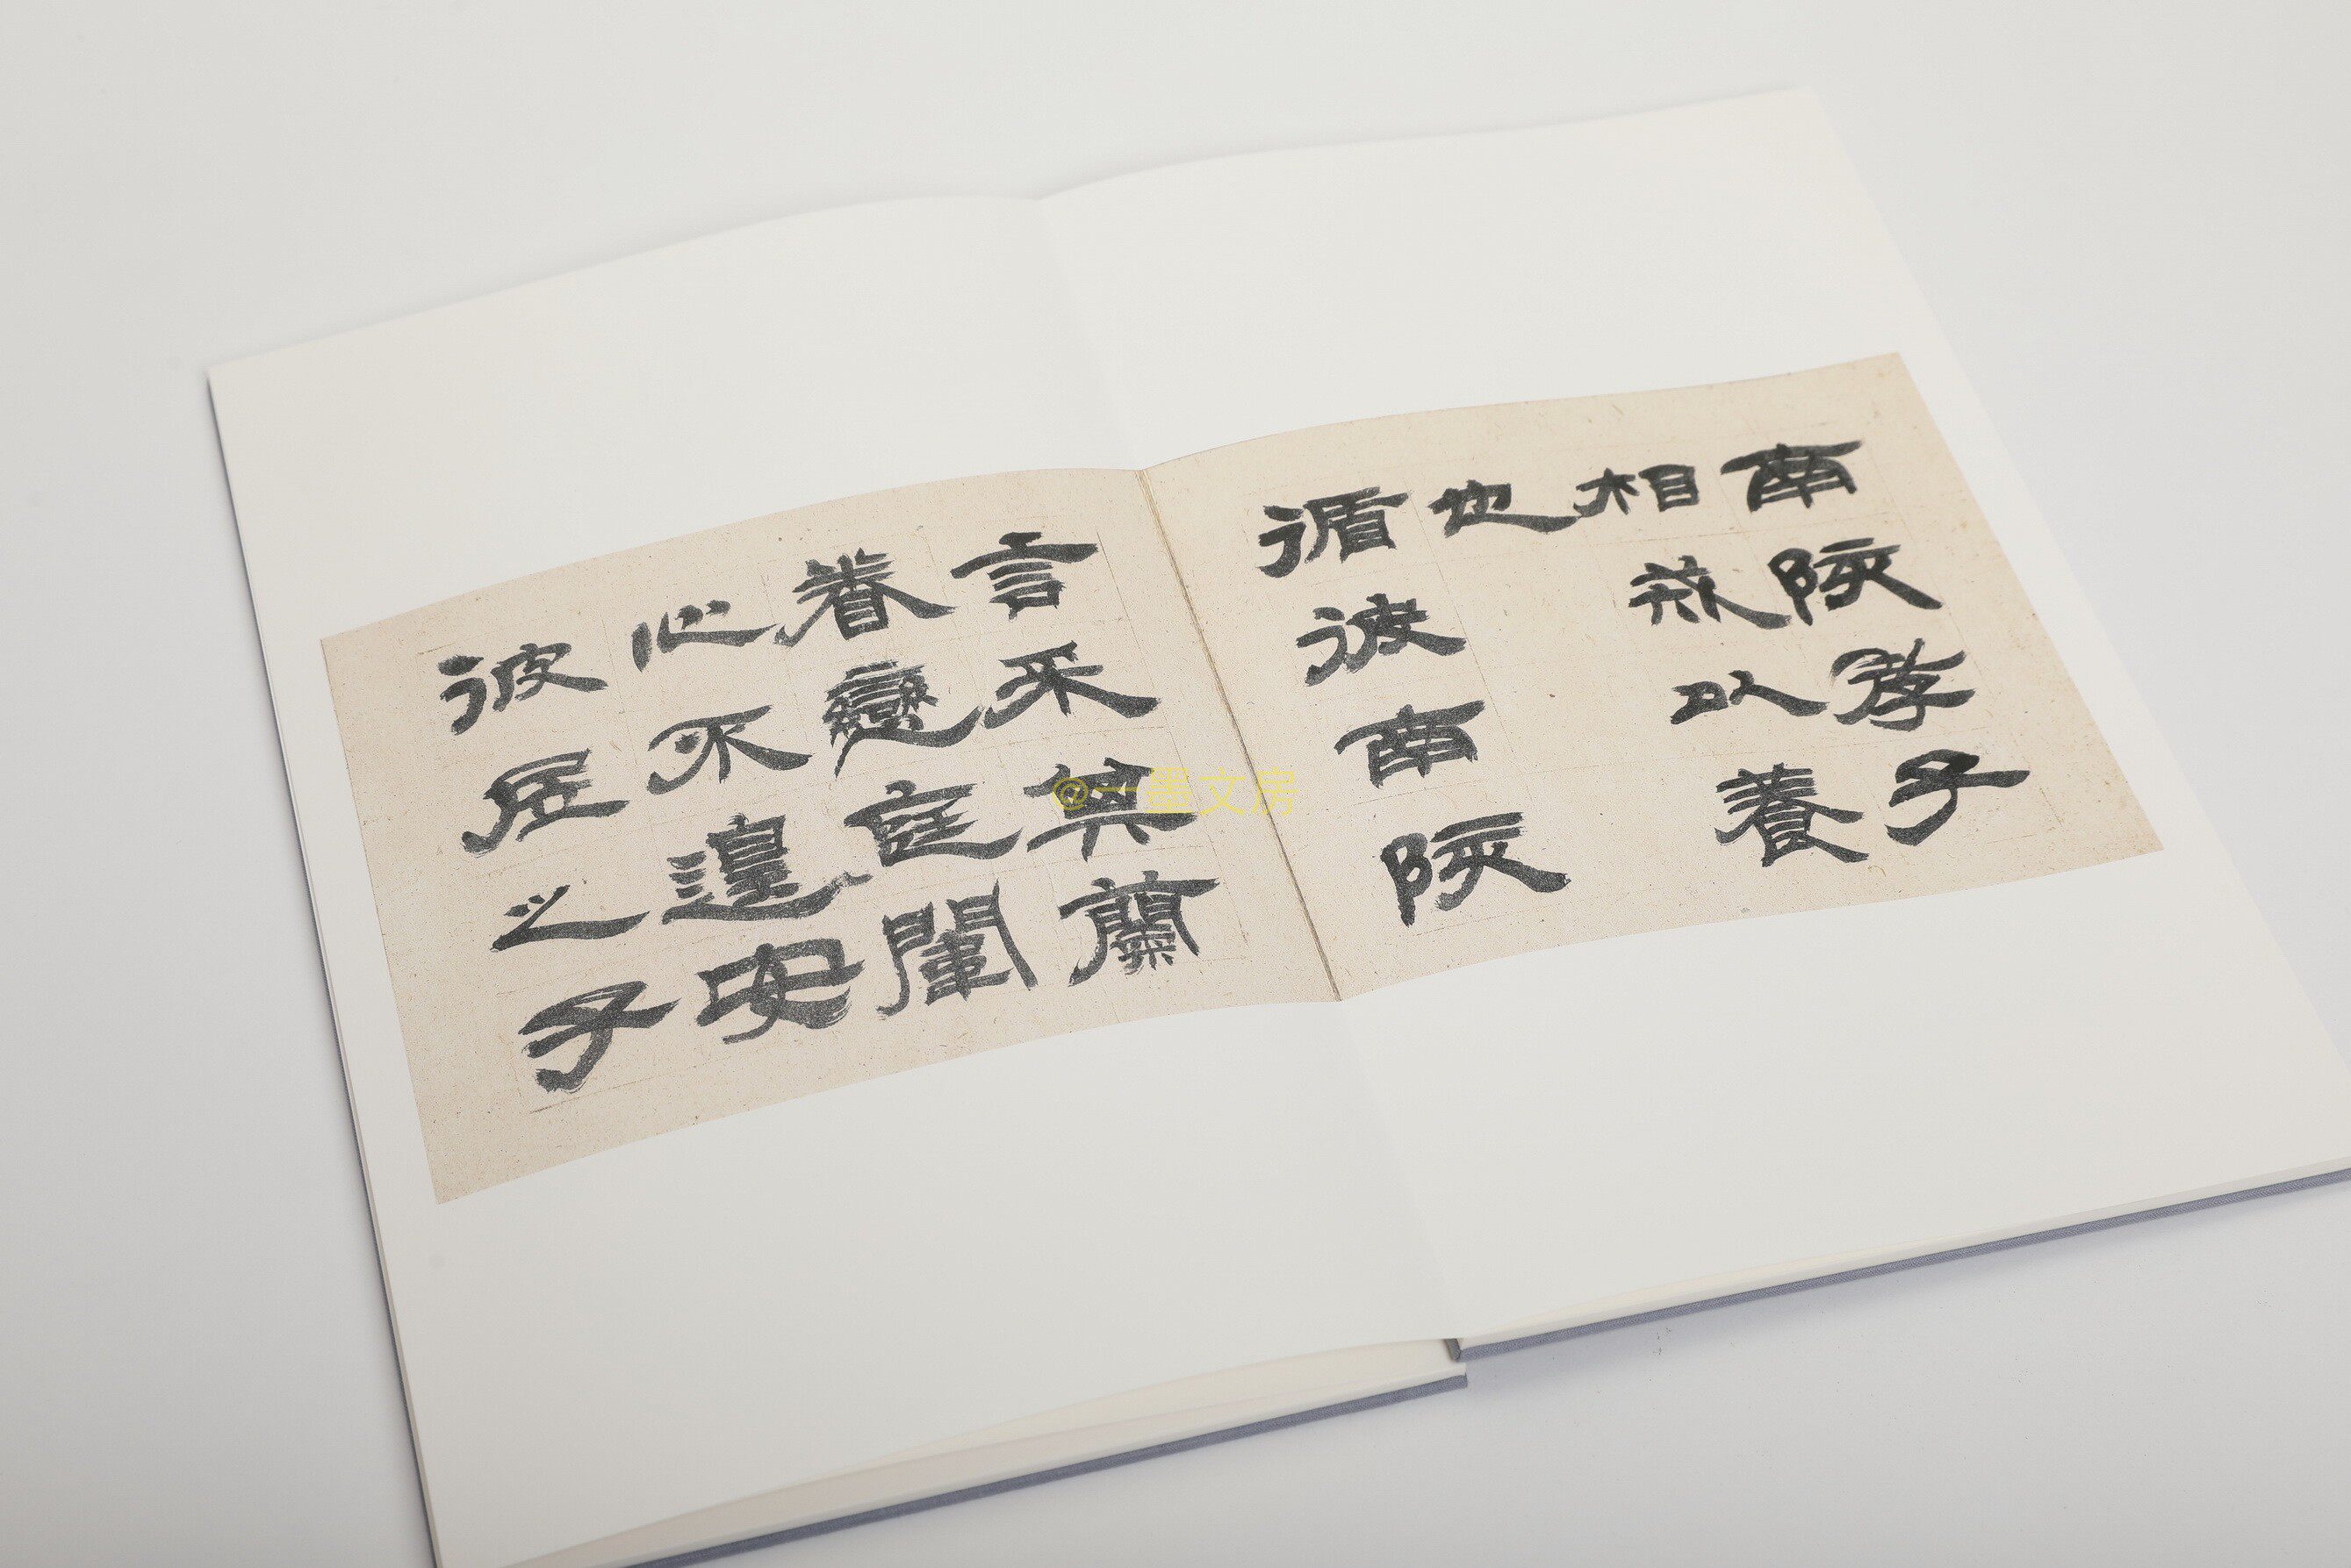 南陔孝子
相戒以養
也
循彼南陔
言采其蘭
眷戀庭闈
心不遑安
彼居之子
@一墨文房